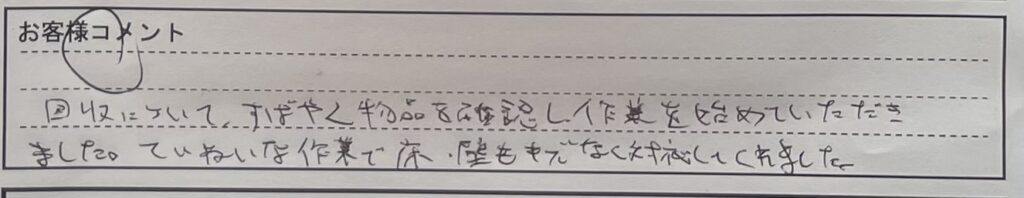 お客様コメント
回収について、すばやく物品を確認し作業を始めていただき
ました。ていねいな作業で床・壁もキズなく対応してくれました。